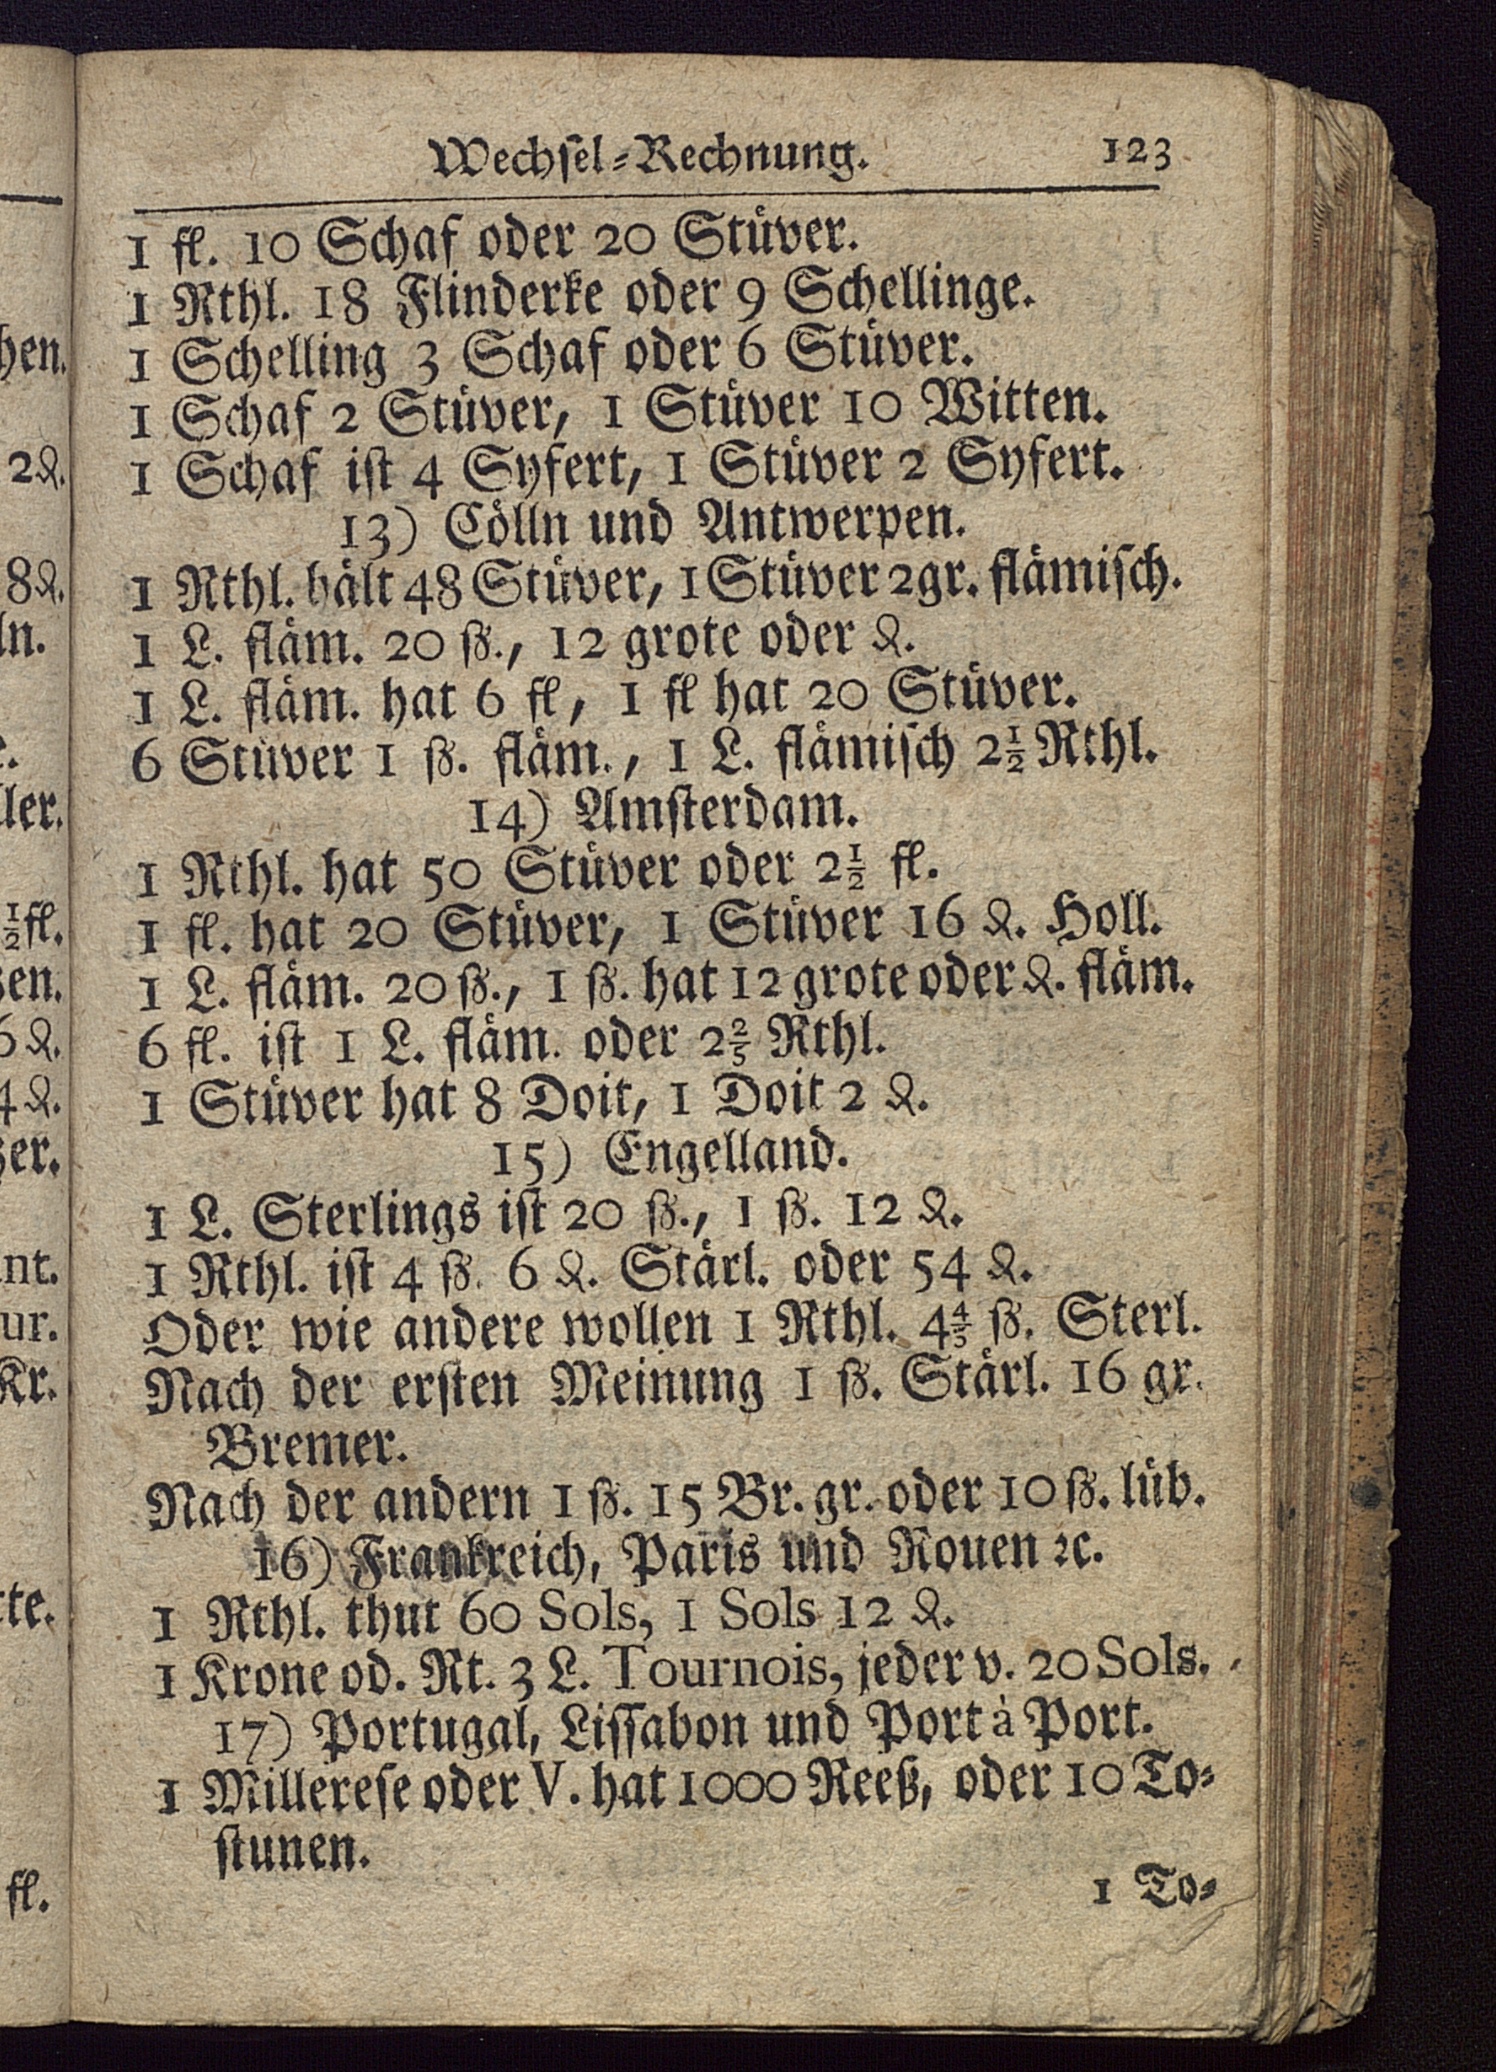 Wechsel-Rechnung. 123
1 fl. 10 Schaf oder 20 Stüver.
1 Rthl. 18 Flinderke oder 9 Schellinge.
1 Schelling 3 Schaf oder 6 Stüver.
1 Schaf 2 Stüver, 1 Stüver 10 Witten.
1 Schaf ist 4 Syfert, 1 Stüver 2 Syfert.
13) Cölln und Antwerpen.
1 Rthl. hält 48 Stüver, 1 Stüver 2gr. flämisch.
1 L. fläm. 20 ß., 12 grote oder ₰.
1 L. fläm. hat 6 fl, 1 fl hat 20 Stüver.
6 Stüver 1 ß. fläm., 1 L. flämisch 2½ Rthl.
14) Amsterdam.
1 Rthl. hat 50 Stüver oder 2½ fl.
1 fl. hat 20 Stüver, 1 Stüver 16 ₰. Holl.
1 L. fläm. 20 ß., 1 ß. hat 12 grote oder ₰. fläm.
6 fl. ist 1 L. fläm. oder 2⅖ Rthl.
1 Stüver hat 8 Doit, 1 Doit 2 ₰.
15) Engelland.
1 L. Sterlings ist 20 ß., 1 ß. 12 ₰.
1 Rthl. ist 4 ß. 6 ₰. Stärl. oder 54 ₰.
Oder wie andere wollen 1 Rthl. 4⅘ ß. Sterl.
Nach der ersten Meinung 1 ß. Stärl. 16 gr.
Bremer.
Nach der andern 1 ß. 15 Br. gr. oder 10 ß. lüb.
16) Frankreich, Paris und Rouen ꝛc.
1 Rthl. thut 60 Sols, 1 Sols 12 ₰.
1 Krone od. Rt. 3 L. Tournois, jeder v. 20 Sols.
17) Portugal, Lissabon und Port à Port.
1 Millerese oder V. hat 1000 Reeß, oder 10 To-
stunen.
1 To-